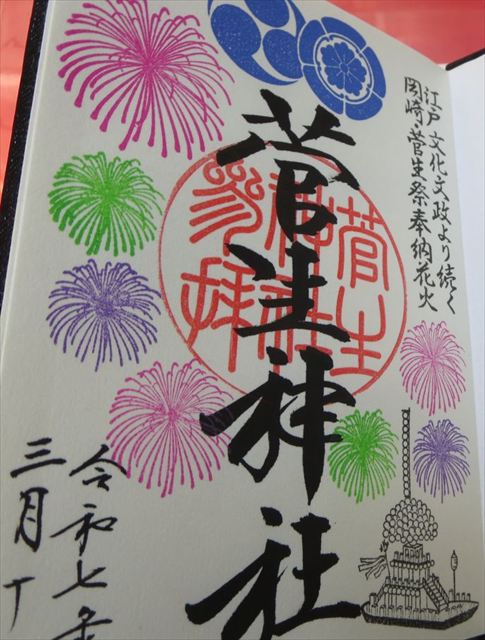 江戸文化文政より続く
岡崎・菅生祭奉納花火
菅生神社
菅生
神社
参拝
令和七年
三月十